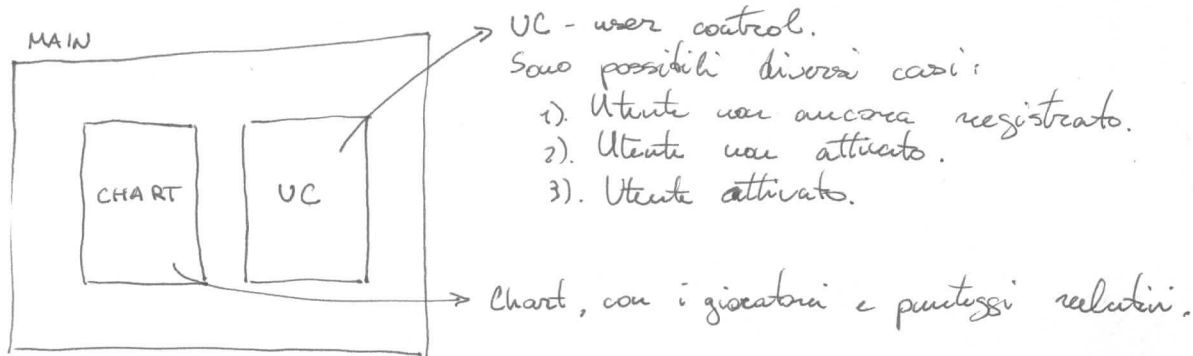 MAIN
CHART
UC
UC - user control.
Sono possibili diversi casi:
1). Utente non ancora registrato.
2). Utente non attivato.
3). Utente attivato.
Chart, con i giocatori e punteggi relativi.